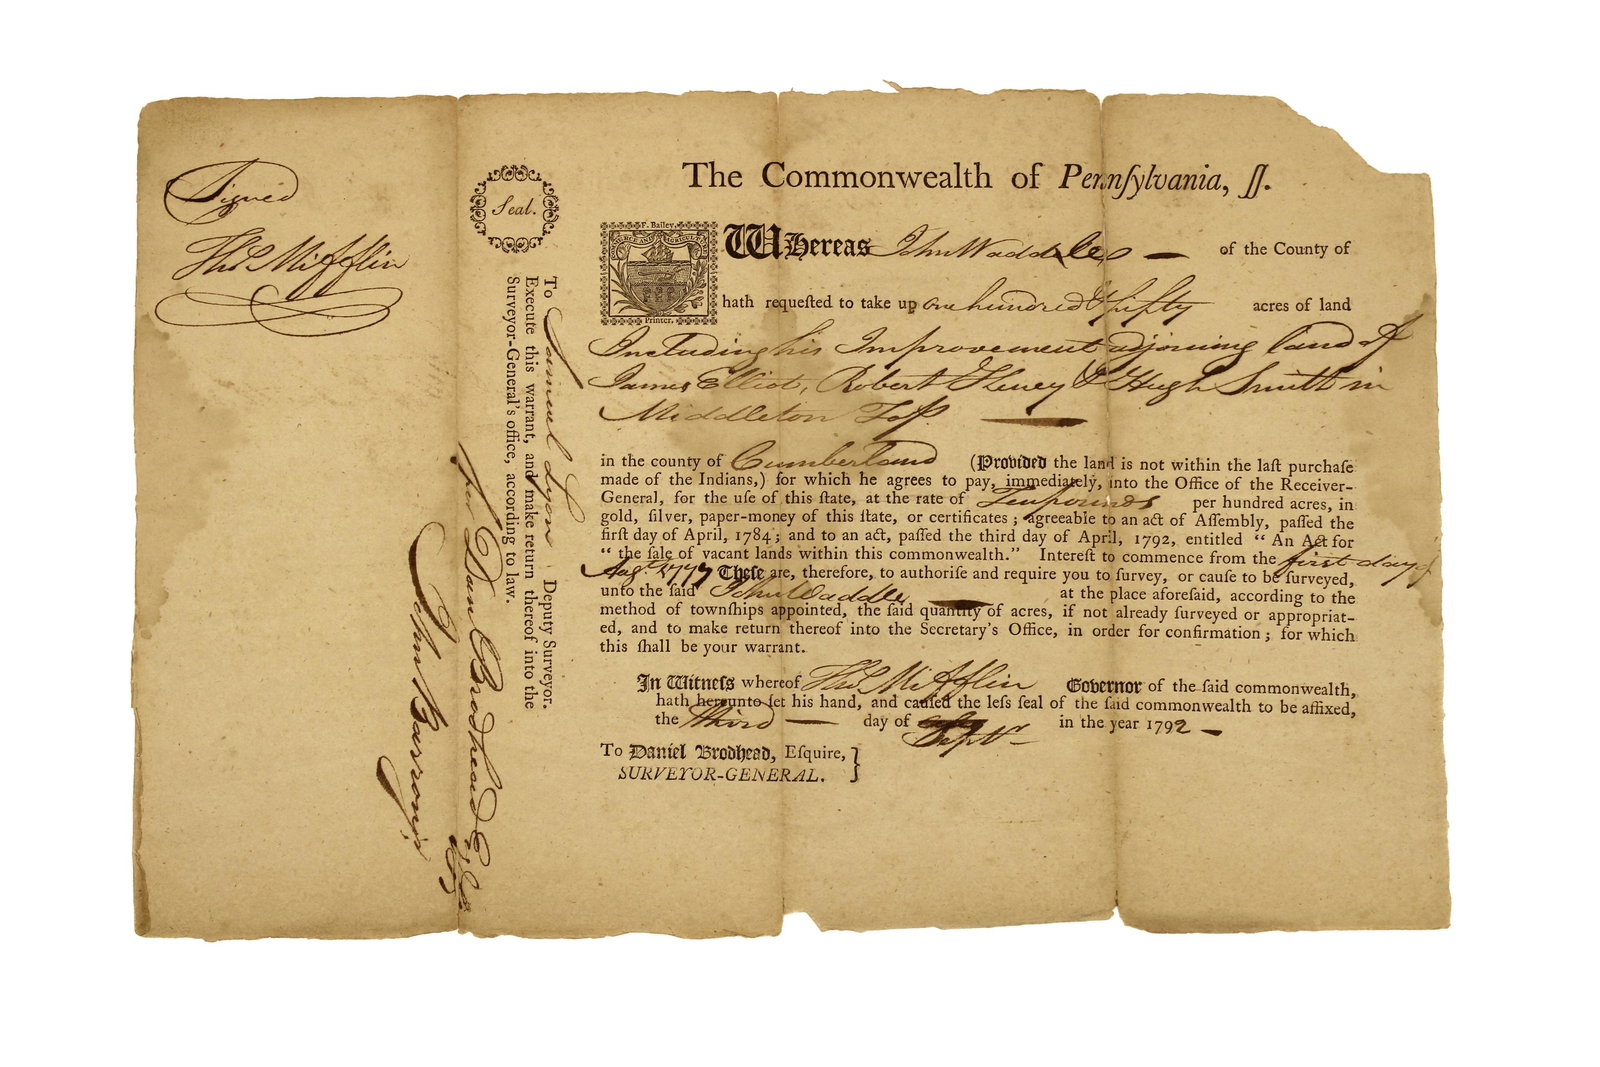 Signed
Thos. Mifflin
Seal.
The Commonwealth of Pennſylvania, ſſ.
F. Bailey,
Printer.
WHereas John Waddle — of the County of
hath requeſted to take up one hundred & fifty acres of land
Including his Improvement adjoining land of
James Elliot, Robert Henry & Hugh Smith in
Middleton Tsp.
in the county of Cumberland (Provided the land is not within the laſt purchaſe
made of the Indians,) for which he agrees to pay, immediately, into the Office of the Receiver-
General, for the uſe of this ſtate, at the rate of Ten pounds per hundred acres, in
gold, ſilver, paper-money of this ſtate, or certificates; agreeable to an act of Aſſembly, paſſed the
firſt day of April, 1784; and to an act, paſſed the third day of April, 1792, entitled “ An Act for
“ the ſale of vacant lands within this commonwealth.” Intereſt to commence from the first day of
Augt. 1777 Theſe are, therefore, to authoriſe and require you to ſurvey, or cauſe to be ſurveyed,
unto the ſaid John Waddle — at the place aforeſaid, according to the
method of townſhips appointed, the ſaid quantity of acres, if not already ſurveyed or appropriat-
ed, and to make return thereof into the Secretary's Office, in order for confirmation; for which
this ſhall be your warrant.
In Witneſs whereof Thos. Mifflin Governor of the ſaid commonwealth,
hath hereunto ſet his hand, and cauſed the leſs ſeal of the ſaid commonwealth to be affixed,
the third — day of Septr — in the year 1792 —
To Daniel Brodhead, Eſquire, }
SURVEYOR-GENERAL.
To Samuel Lyon Deputy Surveyor.
Execute this warrant, and make return thereof into the
Surveyor-General's office, according to law.
per Danl Brodhead Esqr
John Barron